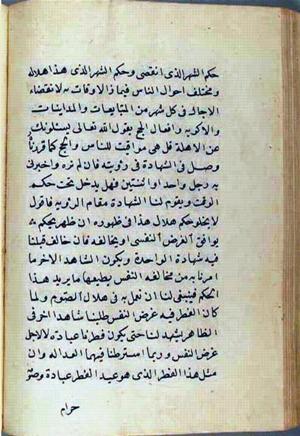 حكم الشهر الذى انقضى وحكم الشهر الذى هذا هلاله
ومختلف احوال الناس فيما ذا الاوقات به لانقضاء
الاجال فى كل شهر من المبايعات والمداينات
والاكرية وافعال الحج يقول الله تعالى يسئلونك
عن الاهلة قل هى مواقيت للناس والحج كما قررناه
وصل فى الشهادة فى رؤيته فان لم نره واخبرنى
به رجل واحد او اثنتين فهل يدخل تحت حكم
الوقت ويقوم لنا الشهادة مقام الرؤية فاقول
لا يخلو حكم هلال هذا فى ظهوره ان ظهر بحكم
يوافق الغرض النفسى او يخالفه فان خالف قبلنا
فيه شهادة الواحدة ويكون الشاهد الاخر ما
امرنا به من مخالفة النفس يطبعها ما يريد هذا
الحكم فينبغى لنا ان نعمل به فى هلال الصوم ولما
كان الفطر فيه غرض النفس طلبنا شاهدا اخر فى
الظاهر يشهد لنا حتى يكون فطرنا عبادة لا لاجل
غرض النفس وربما اشترطنا فيهما العدالة وان
مثل هذا الفطر الذى هو عيد الفطر عبادة
حرام